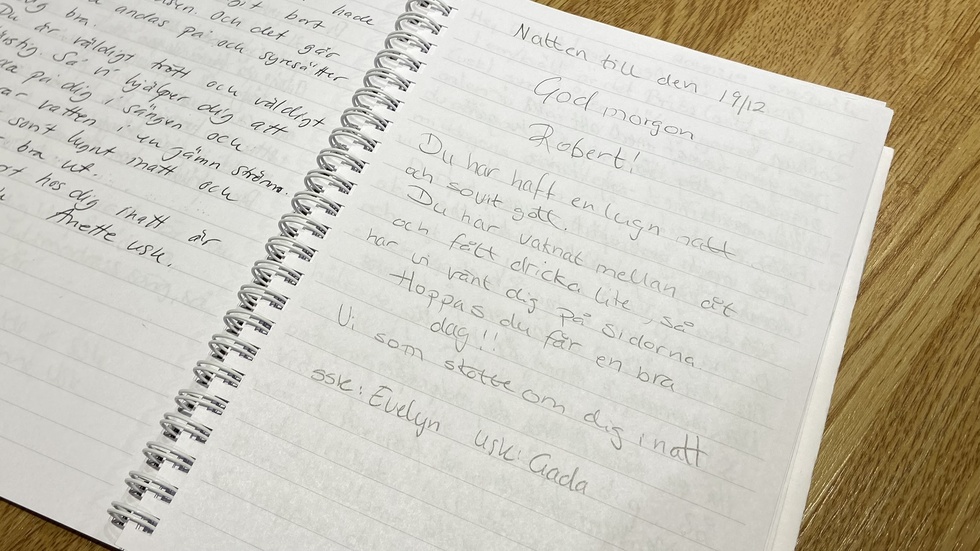 bort hade
och det går
bra. andas på och syresätter
Du är väldigt trött och väldigt
Så vi hjälper dig att
på dig i sängen och
vatten i en jämn ström.
samt lugnt matt och
bra ut.
hos dig inatt är
Anette usk.
Natten till den 19/12
God morgon
Robert!
Du har haft en lugn natt
och sovit gott.
Du har vaknat mellan åt
och fått dricka lite, så
har vi vänt dig på sidorna.
Hoppas du får en bra
dag!!
Vi som stötte om dig inatt
ssk: Evelyn usk: Gada